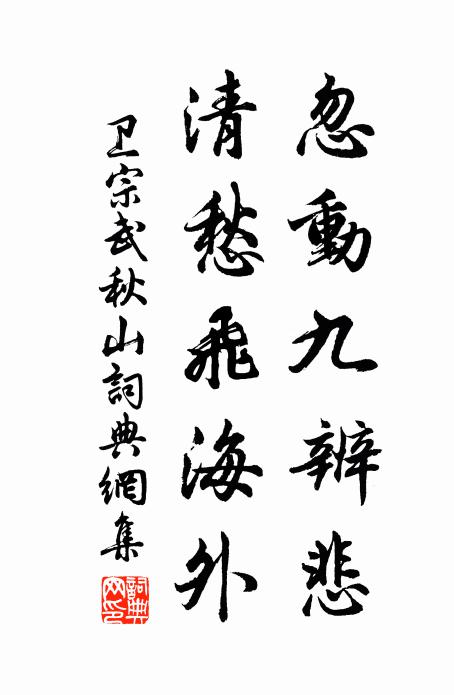 忽動九辨悲
清愁飛海外
卫宗武秋山詞典網集
詞典網印